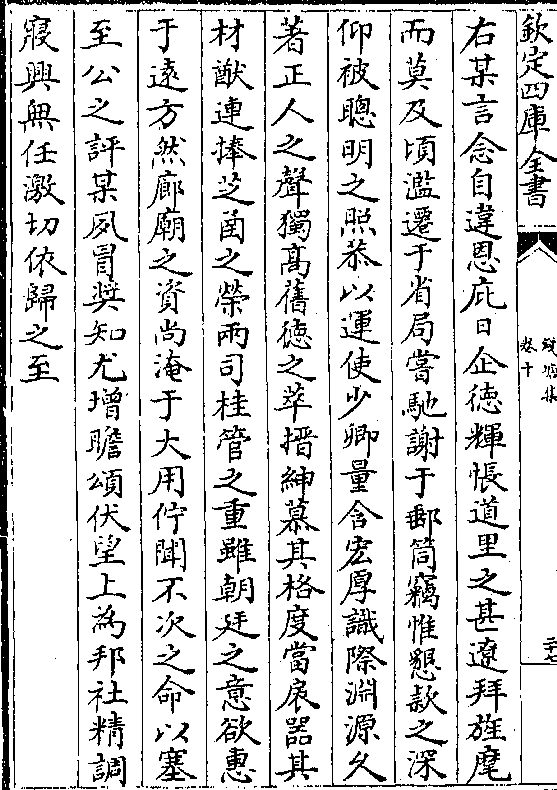 欽定四庫全書
錢塘集
卷十
二十七
右某言念自違恩庇日企德輝悵道里之甚遼拜旌麾
而莫及頃濫遷于省局嘗馳謝于郵筒竊惟懇款之深
仰被聰明之照恭以運使少卿量含宏厚識際淵源久
著正人之聲獨髙舊徳之萃搢紳慕其格度當扆器其
材猷連捧芝函之榮兩司桂管之重雖朝廷之意欲惠
于逺方然廊廟之資尚淹于大用佇聞不次之命以塞
至公之評某夙冒奬知尤增瞻頌伏望上為邦社精調
寢興無任激切依歸之至